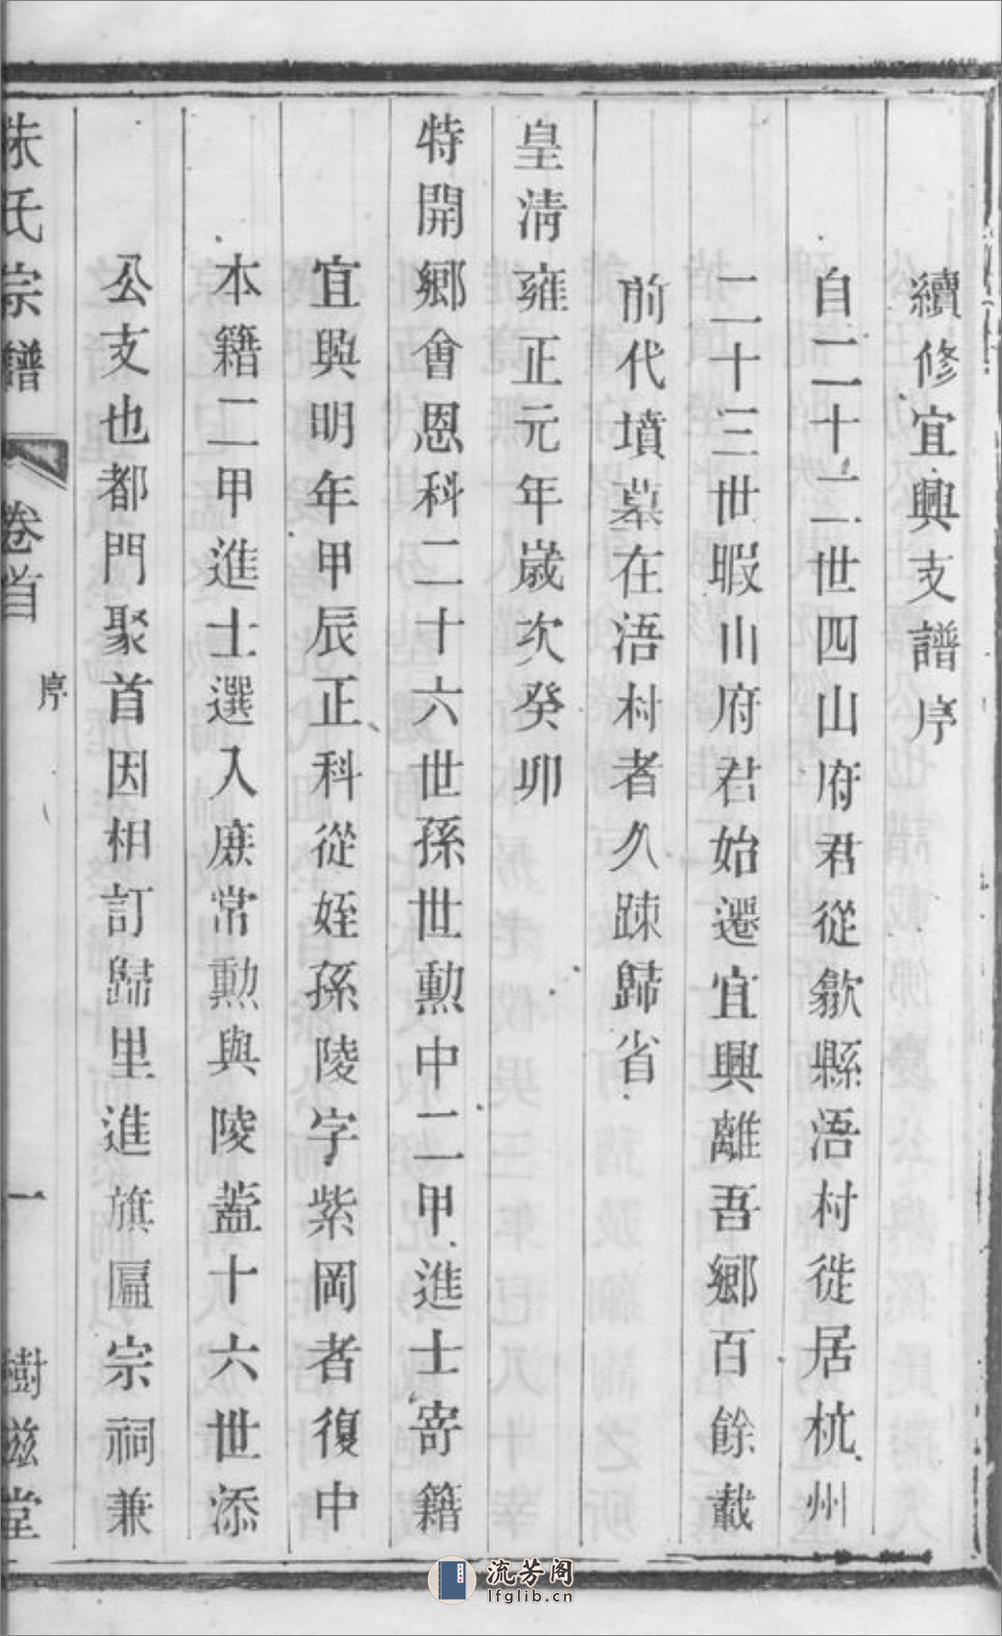 續修宜興支譜序
自二十二世四山府君從歙縣浯村徙居杭州
二十三世暇山府君始遷宜興離吾鄉百餘載
前代墳墓在浯村者久踈歸省
皇淸雍正元年歲次癸卯
特開鄉會恩科二十六世孫世勲中二甲進士寄籍
宜興明年甲辰正科從姪孫陵字紫岡者復中
本籍二甲進士選入庶常勲與陵葢十六世添
公支也都門聚首因相訂歸里進旗匾宗祠兼
朱氏宗譜 卷首 序 一 樹滋堂
流芳阁
lfglib.cn